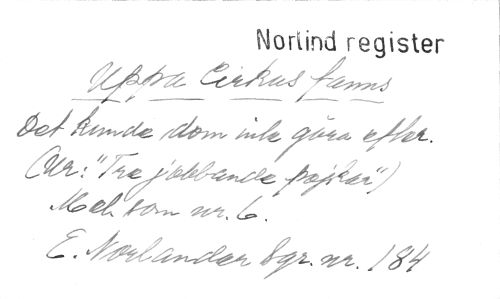 Norlind register
Uppå Cirkus fanns
Det kunde dom inte göra efter.
(Ur: "Tre jobbande pojkar")
Mel. som nr. 6.
E. Norlander Sgr. nr. 184